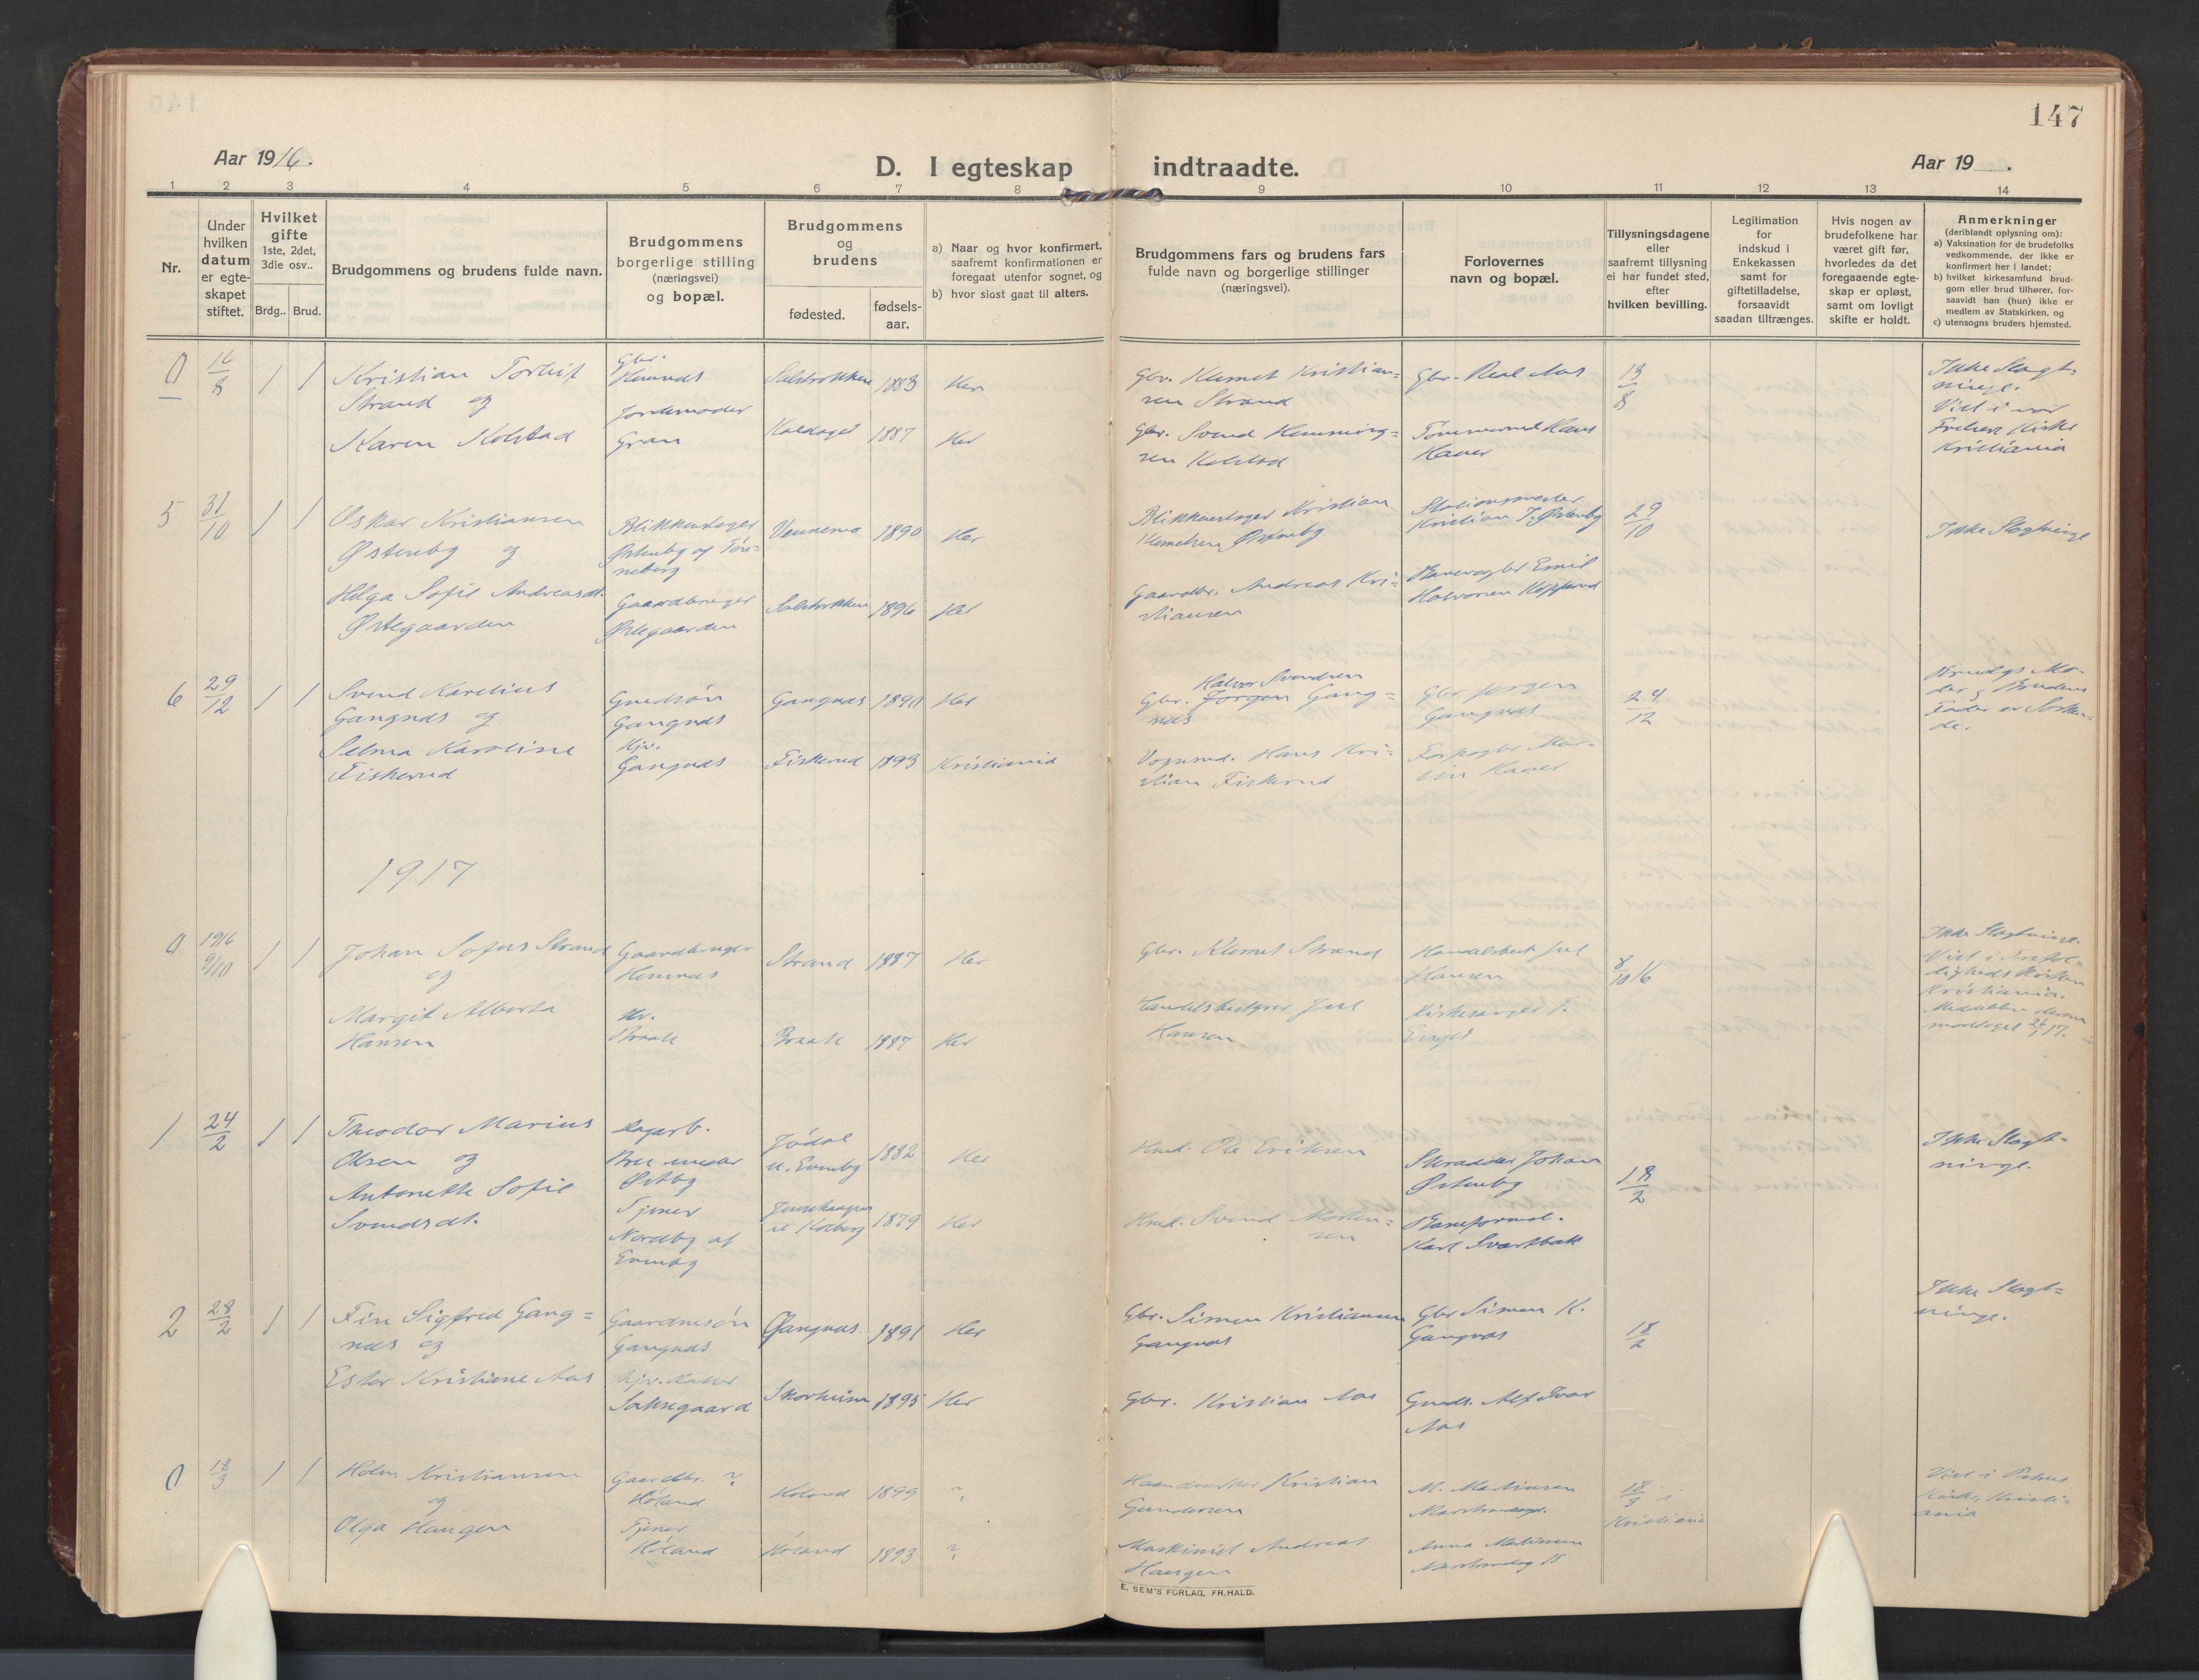 147
Aar 1916.
D. I egteskap indtraadte.
Aar 19 .
1 2 3 4 5 6 7 8 9 10 11 12 13 14
Nr.
Under
hvilken
datum
er egte-
skapet
stiftet.
Hvilket
gifte
1ste, 2det,
3die osv..
Brdg.. Brud.
Brudgommens og brudens fulde navn.
Brudgommens
borgerlige stilling
(næringsvei)
og bopæl.
Brudgommens
og
brudens
fødested.
fødsels-
aar.
a) Naar og hvor konfirmert,
saafremt konfirmationen er
foregaat utenfor sognet, og
b) hvor sist gaat til alters.
Brudgommens fars og brudens fars
fulde navn og borgerlige stillinger
(næringsvei).
Forlovernes
navn og bopæl.
Tillysningsdagene
eller
saafremt tillysning
ei har fundet sted,
efter
hvilken bevilling.
Legitimation
for
indskud i
Enkekassen
samt for
giftetilladelse,
forsaavidt
saadan tiltrænges.
Hvis nogen av
brudefolkene har
været gift før,
hvorledes da det
foregaaende egte-
skap er opløst,
samt om lovligt
skifte er holdt.
Anmerkninger
(deriblandt oplysning om):
a) Vaksination for de brudefolks
vedkommende, der ikke er
konfirmert her i landet;
b) hvilket kirkesamfund brud-
gom eller brud tilhører, for-
saavidt han (hun) ikke er
medlem av Statskirken, og
c) utensogns bruders hjemsted.
0 16/8 1 1
Kristian Torleif
Strand og
Karen Kolstad
Gbr.
Hemnes
Jordemoder
Gran
1883 Her
1887 Her
Gbr. Klemet Kristian=
sen Strand
Gbr. Svend Hemming=
sen Kolstad
Gbr. Real Aas
Tømmermd Hans
Haner
13/8
Ikke Slægt=
ninge.
Viet i vor
Frelsers Kirke
Kristiania
5 31/10 1 1
Oskar Kristiansen
Østenby og
Helga Sofie Andreasdt.
Østegaarden
Blikkenslager
Østenby og Tøn=
neberg
Gaardbruger
Østegaarden
Vennemo 1890 Her
1896 Her
Blikkenslager Kristian
Klemetsen Østenby
Gaardbr. Andreas Kri=
stiansen
Stationsmester
Kristian J. Østenby
Banevogter Emil
Halvorsen
29/10
Ikke Slægtninge
6 29/12 1 1
Svend Karelius
Gangnæs og
Selma Karoline
Fiskerud
Gmdsøn
Gangnæs
Hjv.
Gangnæs
Gangnæs 1890 Her
Fiskerud 1893 Kristiania
Halvor Svendsen
Gbr. Jørgen Gang=
næs
Vognmd. Hans Kri=
stian Fiskerud
Gbr Jørgen
Gangnæs
Mar=
tin Haner
24/12
Brudgs Mo=
der og Brudens
Fader er Søsken=
de.
1917
0 1916 9/10 1 1
Johan Sofus Strand
og
Margit Alberta
Hansen
Gaardbruger
Hemnes
Hv.
Braate
Strand 1887 Her
Braate 1887 Her
Gbr. Klemet Strand
Handelsbestyrer Jul
Hansen
Handelsbest Jul
Hansen
Kirkesanger T.
8/10 16
Ikke Slægtninge.
Viet i Trefol=
digheds Kirken
Kristiania.
Meddelelse derom
modtaget 26/1 17.
1 24/2 1 1
Theodor Marius
Olsen og
Antonette Sofie
Svendsdt.
Dagarb.
Bree under
Østby
Tjener
Nordby af
Evenby
Jødal
u. Evenby
1882 Her
1879 Her
Hmd. Ole Eriksen
Hmd. Svend Morten=
sen
Skrædder Johan
Østenby
Baneformd.
Karl Svartbæk
18/2
Ikke Slægt=
ninge.
2 28/2 1 1
Fin Sigfred Gang=
næs og
Ester Kristiane Aas
Gaardmsøn
Gangnæs
Hjv. Datter
Saksegaard
Gangnæs 1891 Her
Skorheim 1895 Her
Gbr. Simen Kristiansen
Gangnæs
Gbr. Kristian Aas
Gbr Simen K.
Gangnæs
Gmds. Alf Ivar
Aas
18/2
Ikke Slægt=
ninge.
0 18/3 1 1
Holm Kristiansen
og
Olga Haugen
Gaardbr. ?
Høland
Tjener
Høland
Høland 1899 ?
Høland 1893 ?
Haandverker Kristian
Gundersen
Maskinist Andreas
Haugen
M. Martinsen
Anna Martinsen
18/3 i
Kristiania
Viet i Petrus
Kirke, Kristi=
ania
E. SEM'S FORLAG, FR.HALD.